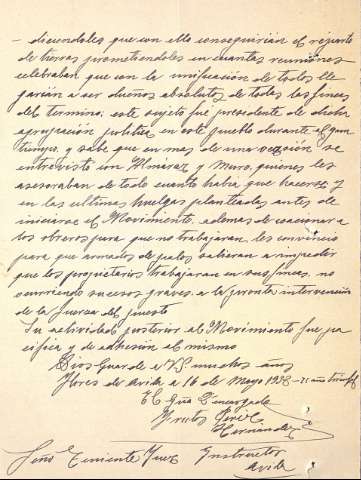 - diciendoles que con ello conseguirian el reparto
de tierras prometiendoles en cuantas reuniones
celebraban que con la unificación de todos lle
garian a ser dueños absolutos de todas las fincas
del termino; este sujeto fué presidente de dicha
agrupación politica en este pueblo durante algun
tiempo, y sabe que en mas de una ocasión se
entrevistó con Almiraz y Muro, quienes les
asesoraban de todo cuanto habia que hacerse y
en las ultimas huelgas planteadas antes de
iniciarse el Movimiento, ademas de coacionar a
los obreros para que no trabajaran, les convencio
para que armados de palos salieran a impedir
que los propietarios trabajaran en sus fincas, no
ocurriendo sucesos graves, a la pronta intervención
de la fuersa del puesto
Su actividad posterior al Movimiento fue pa
cifica y de adhesión al mismo
Dios Guarde a VS muchos años
Flores de Avila a 16 de Mayo 1938 - II año triunfl
El Gña Encargado
Peréz
Hernandez
Señor Teniente Juez Instructor
Avila